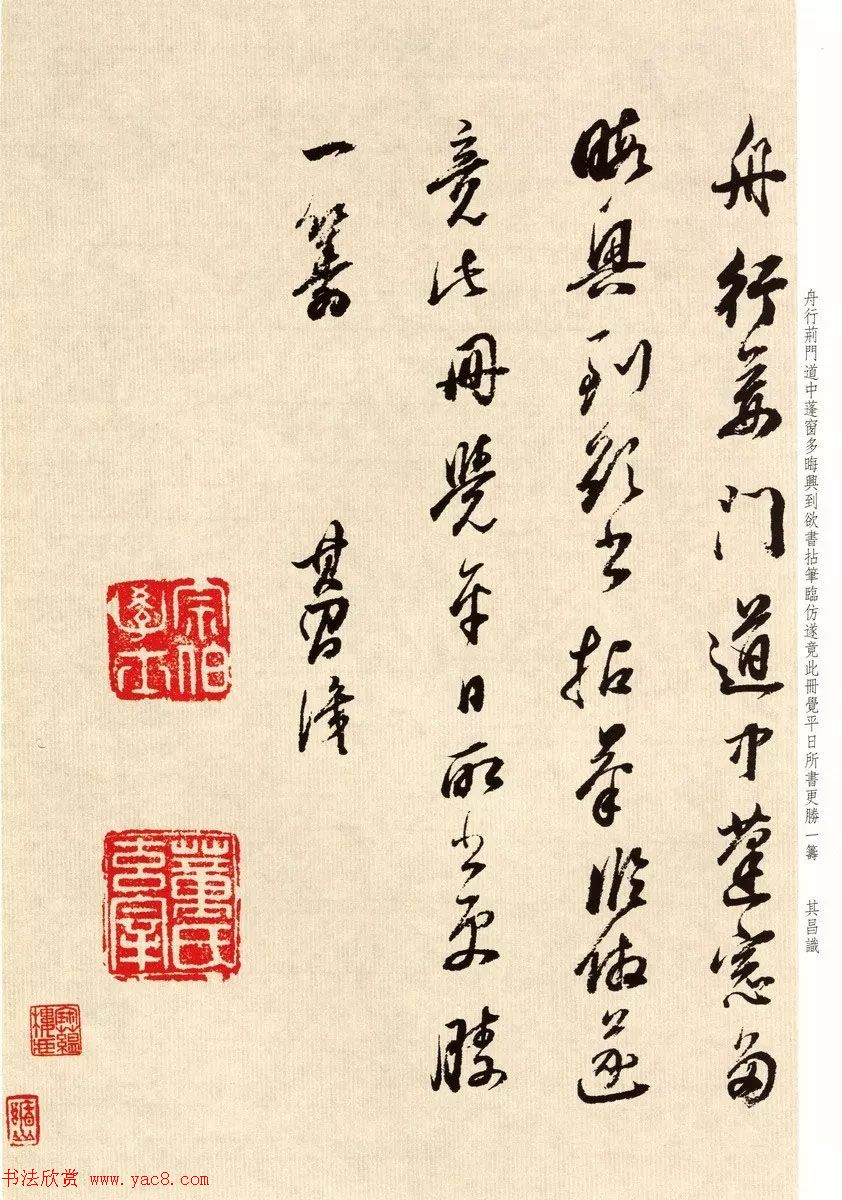 舟行荊門道中蓬窗多
晦興到欲書拈筆臨仿遂
竟此冊覺平日所書更勝
一籌
其昌識
宗伯學士
董氏玄宰
舟行荊門道中蓬窗多晦興到欲書拈筆臨仿遂竟此冊覺平日所書更勝一籌 其昌識
书法欣赏 www.yac8.com